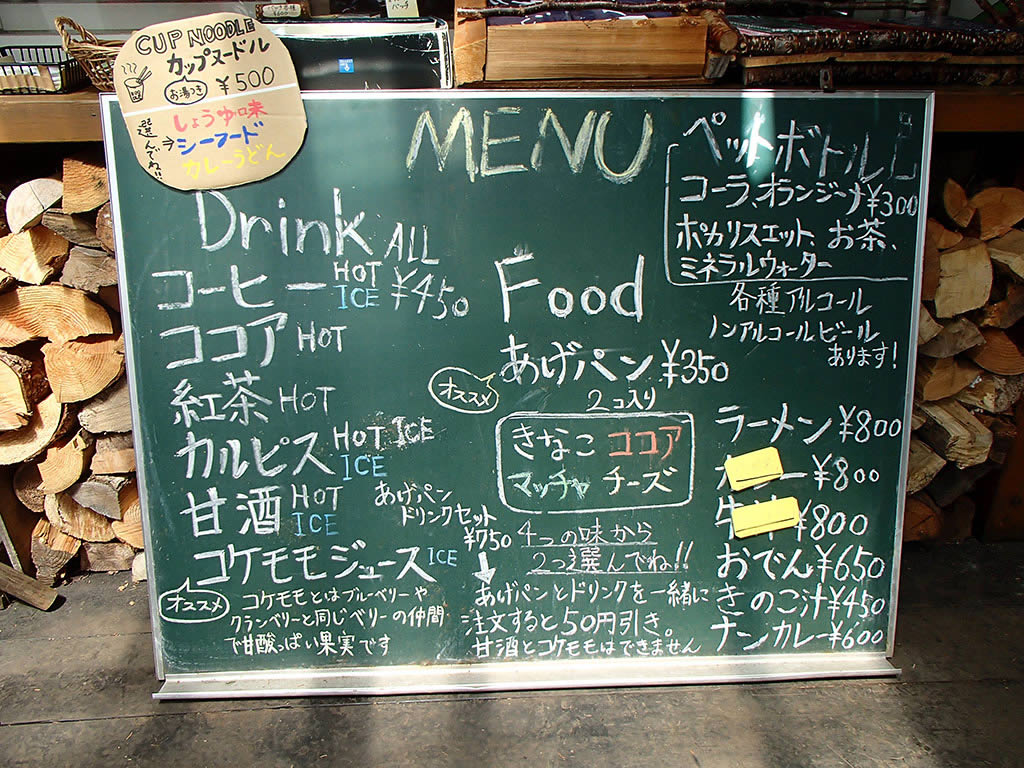 CUP NOODLE
カップヌードル
お湯つき ¥500
しょうゆ味
選んでね!! ⇒ シーフード
カレーうどん
MENU
Drink ALL
コーヒー HOT ICE ¥450
ココア HOT
紅茶 HOT
カルピス HOT ICE
ICE
甘酒 HOT ICE
コケモモジュース ICE
オススメ
コケモモとはブルーベリーや
クランベリーと同じベリーの仲間
で甘酸っぱい果実です
Food
あげパン ¥350
オススメ
2コ入り
きなこ ココア
マッチャ チーズ
4つの味から
2つ選んでね!!
あげパン
ドリンクセット
¥750
↓
あげパンとドリンクを一緒に
注文すると50円引き。
甘酒とコケモモはできません
ペットボトル
コーラ、オランジーナ ¥300
ポカリスエット、お茶、
ミネラルウォーター
各種アルコール
ノンアルコールビール
あります!
ラーメン ¥800
¥800
¥800
おでん ¥650
きのこ汁 ¥450
ナンカレー ¥600